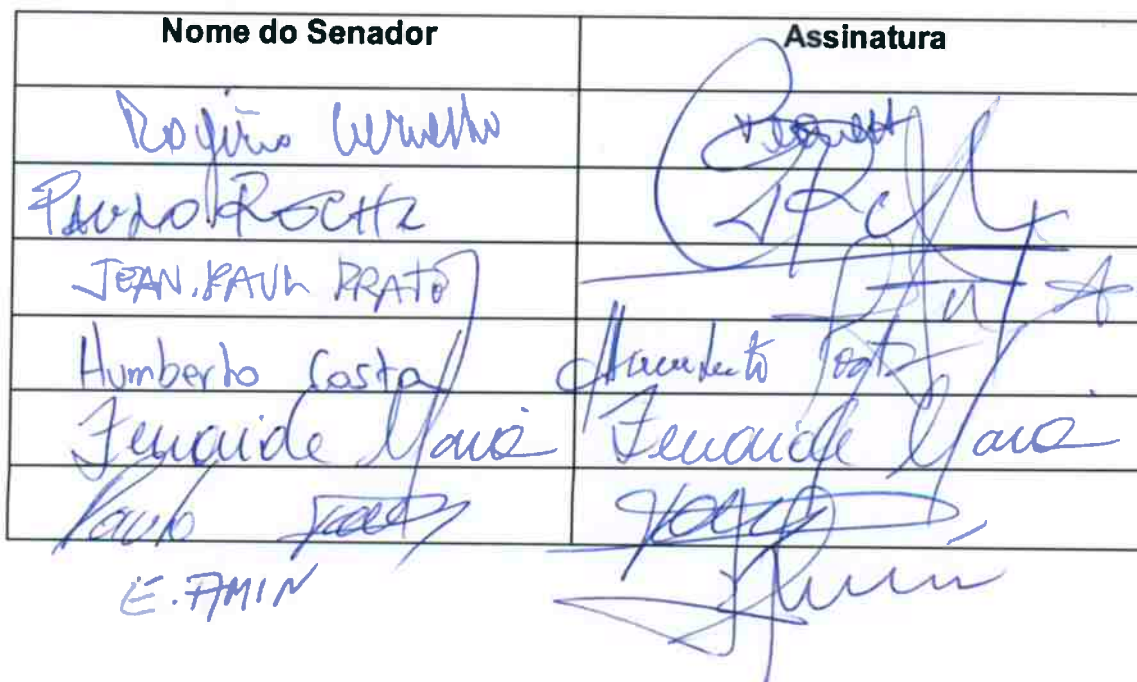 Nome do Senador Assinatura
Rogério Carvalho
PAULO ROCHA
JEAN.PAUL PRATES
Humberto Costa Humberto Costa
Zenaide Maia Zenaide Maia
Paulo
E. AMIN Amin